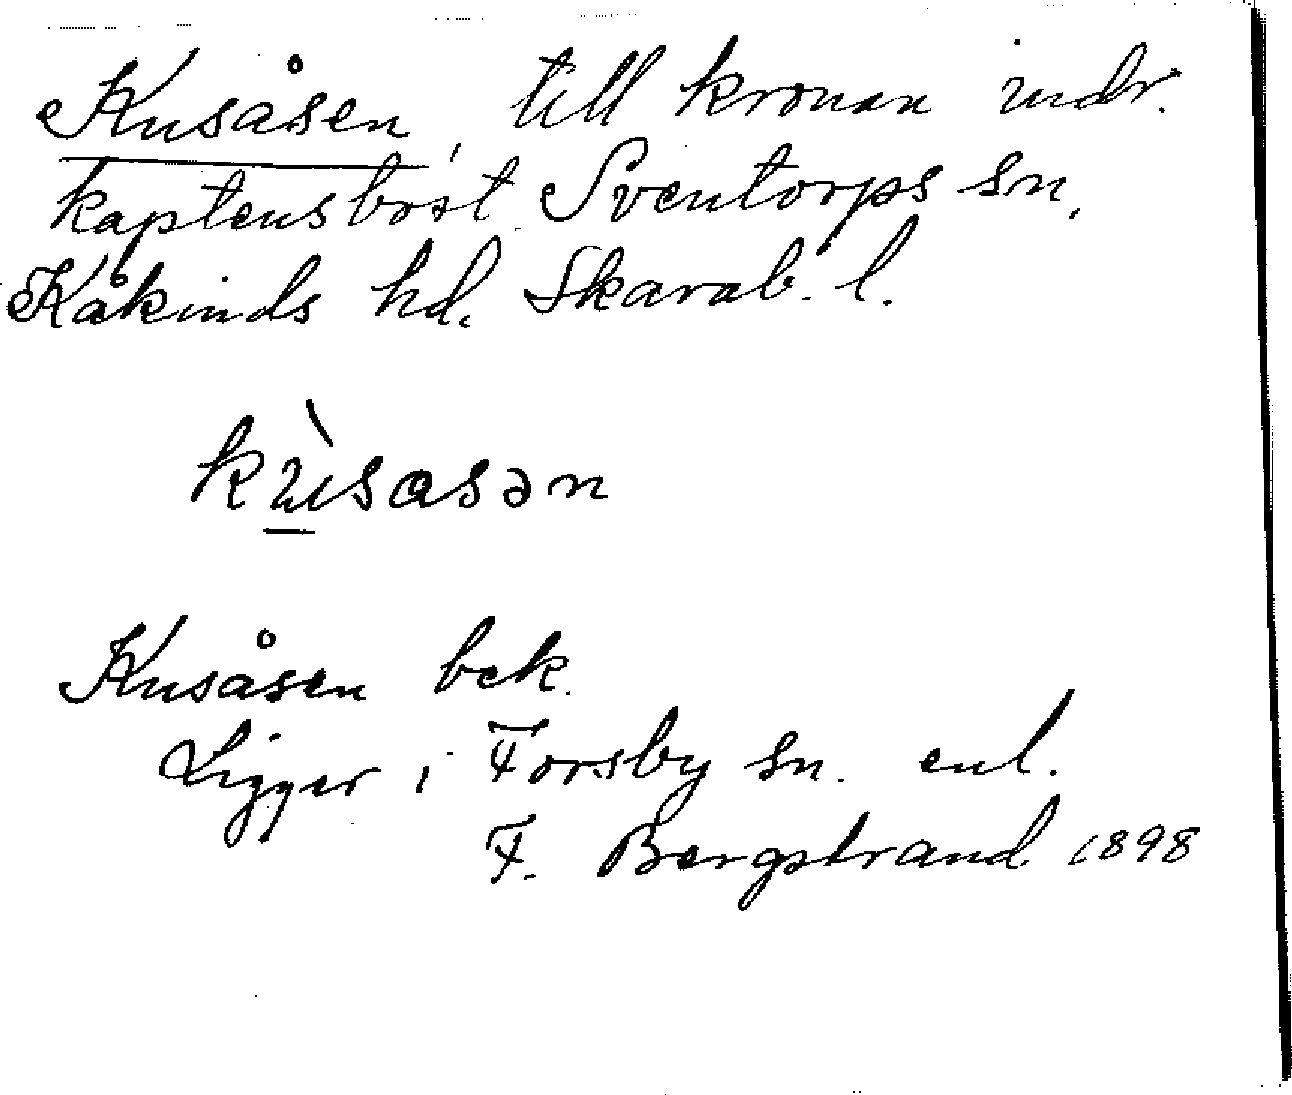 Kusåsen, till kronan indr.
kaptensbost. Sventorps sn,
Kåkinds hd. Skarab. l.
kùsasən
Kusåsen bek.
Ligger i Forsby sn. enl.
F. Bergstrand 1898